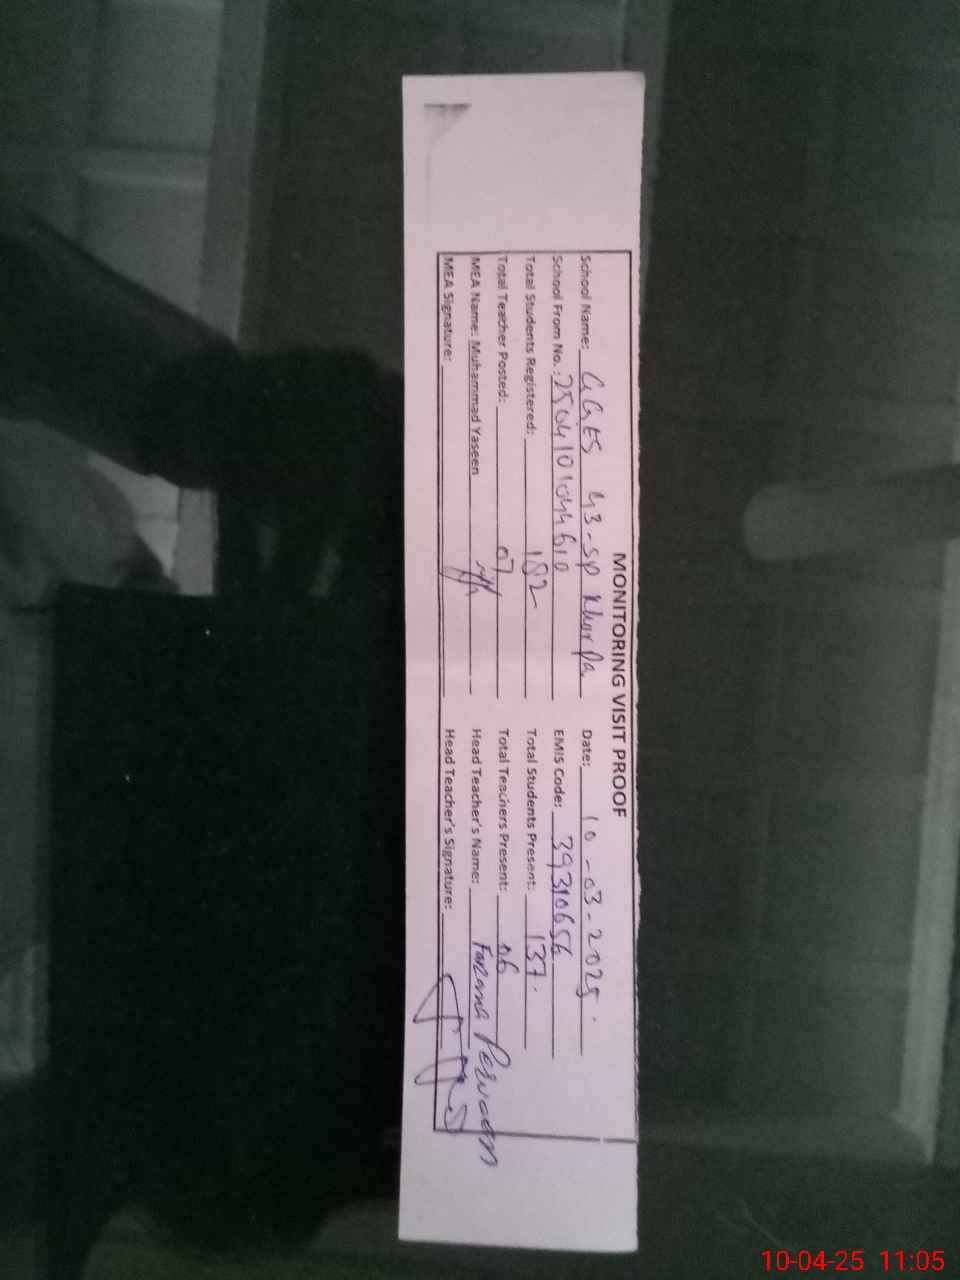 MONITORING VISIT PROOF
School Name: GGES 43-SP Khorpa Date: 10-03-2025.
School From No.: 2504101044610 EMIS Code: 39310656
Total Students Registered: 182 Total Students Present: 137.
Total Teacher Posted: 07 Total Teachers Present: 06
MEA Name: Muhammad Yaseen Head Teacher's Name: Farzana Perveen
MEA Signature: Head Teacher's Signature:
10-04-25 11:05